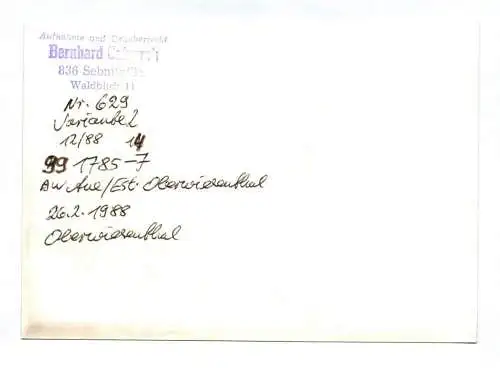 Aufnahme und Urheberrecht
Bernhard
836 Sebnitz
Waldblick 11
Nr. 629
Variante 2
12/88 14
99 1785-7
BW Aue/Est. Oberwiesenthal
26.2.1988
Oberwiesenthal